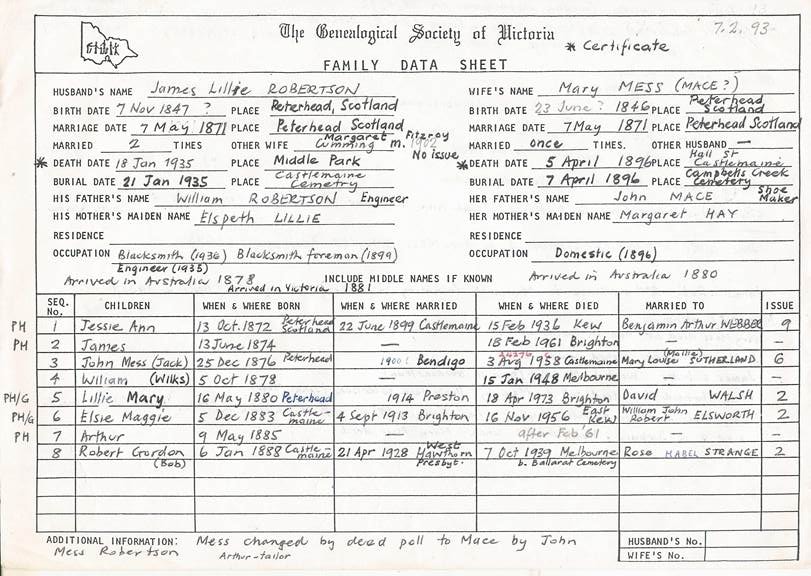 7.2.93
The Genealogical Society of Victoria
* Certificate
FAMILY DATA SHEET
HUSBAND'S NAME James Lillie ROBERTSON
BIRTH DATE 7 Nov 1847 ? PLACE Peterhead, Scotland
MARRIAGE DATE 7 May 1871 PLACE Peterhead Scotland
MARRIED 2 TIMES OTHER WIFE Margaret Cumming m. 1902 Fitzroy No issue
* DEATH DATE 18 Jan 1935 PLACE Middle Park
BURIAL DATE 21 Jan 1935 PLACE Castlemaine Cemetry
HIS FATHER'S NAME William ROBERTSON Engineer
HIS MOTHER'S MAIDEN NAME Elspeth LILLIE
RESIDENCE
OCCUPATION Blacksmith (1936) Blacksmith foreman (1899)
Engineer (1935)
Arrived in Australia 1878
Arrived in Victoria 1881
WIFE'S NAME Mary MESS (MACE?)
BIRTH DATE 23 June ? 1846 PLACE Peterhead Scotland
MARRIAGE DATE 7 May 1871 PLACE Peterhead Scotland
MARRIED once TIMES. OTHER HUSBAND —
* DEATH DATE 5 April 1896 PLACE Hall St Castlemaine
BURIAL DATE 7 April 1896 PLACE Campbells Creek Cemetery
HER FATHER'S NAME John MACE Shoe Maker
HER MOTHER'S MAIDEN NAME Margaret HAY
RESIDENCE
OCCUPATION Domestic (1896)
Arrived in Australia 1880
INCLUDE MIDDLE NAMES IF KNOWN
SEQ. No. CHILDREN WHEN & WHERE BORN WHEN & WHERE MARRIED WHEN & WHERE DIED MARRIED TO ISSUE
PH 1 Jessie Ann 13 Oct. 1872 Peterhead Scotland 22 June 1899 Castlemaine 15 Feb 1936 Kew Benjamin Arthur WEBBER 9
PH 2 James 13 June 1874 — 18 Feb 1961 Brighton — —
3 John Mess (Jack) 25 Dec 1876 Peterhead 1900 Bendigo 3 Aug 1958 Castlemaine Mary Louise (Mollie) SUTHERLAND 6
4 William (Wilks) 5 Oct 1878 15 Jan 1948 Melbourne
PH/G 5 Lillie Mary 16 May 1880 Peterhead 1914 Preston 18 Apr 1973 Brighton David WALSH 2
PH/G 6 Elsie Maggie 5 Dec 1883 Castlemaine 4 Sept 1913 Brighton 16 Nov 1956 East Kew William John Robert ELSWORTH 2
PH 7 Arthur 9 May 1885 — after Feb '61. — —
8 Robert Gordon (Bob) 6 Jan 1888 Castlemaine 21 Apr 1928 West Hawthorn Presbyt. 7 Oct 1939 Melbourne b. Ballarat Cemetery Rose MABEL STRANGE 2
ADDITIONAL INFORMATION: Mess changed by deed poll to Mace by John
Mess Robertson Arthur - tailor
HUSBAND'S No.
WIFE'S No.